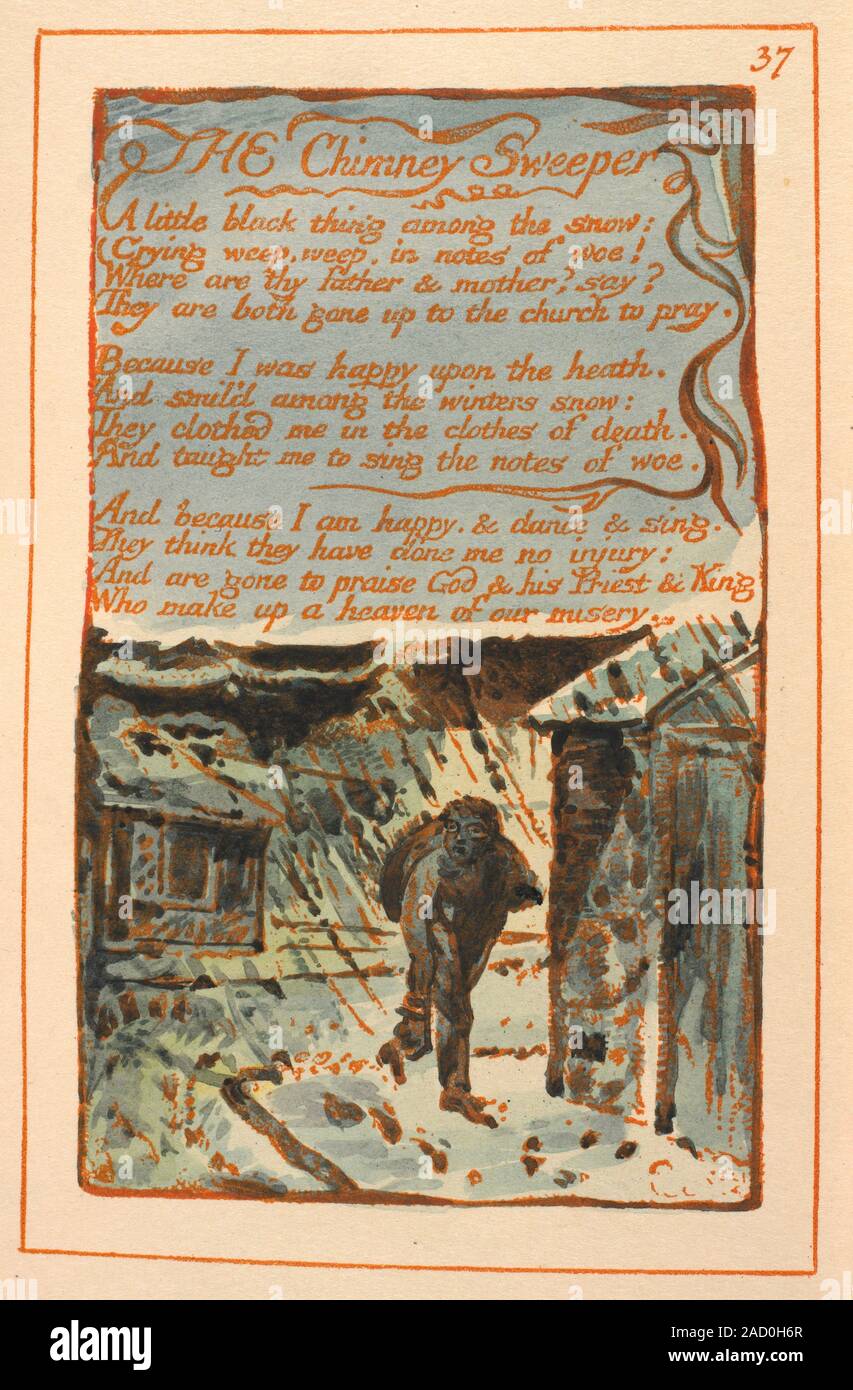 37
THE Chimney Sweeper
A little black thing among the snow:
Crying weep, weep, in notes of woe!
Where are thy father & mother? say?
They are both gone up to the church to pray.
Because I was happy upon the heath.
And smil'd among the winters snow:
They clothed me in the clothes of death.
And taught me to sing the notes of woe.
And because I am happy. & dance & sing.
They think they have done me no injury:
And are gone to praise God & his Priest & King
Who make up a heaven of our misery.
alamy
Image ID: 2AD0H6R
www.alamy.com